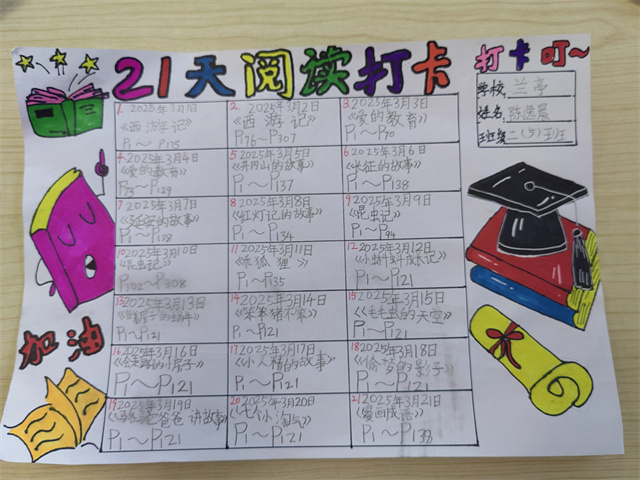 21天阅读打卡
打卡叮~
学校 兰亭
姓名
班级 二(5)班
1. 2025年3月1日
《西游记》
P1～P175
2 2025年3月2日
《西游记》
P176～P307
3 2025年3月3日
《爱的教育》
P1～P70
4 2025年3月4日
《爱的教育》
P73～P129
5 2025年3月5日
《井冈山的故事》
P1～P137
6 2025年3月6日
《长征的故事》
P1～P138
7 2025年3月7日
《延安的故事》
P1～P138
8 2025年3月8日
《红灯记的故事》
P1～P134
9 2025年3月9日
《昆虫记》
P1～P94
10 2025年3月10日
《昆虫记》
P102～P308
11 2025年3月11日
狐狸》
P1～P35
12 2025年3月12日
《小蝌蚪成长记》
P1～P121
13 2025年3月13日
房子的蜗牛》
P1～P121
14 2025年3月14日
《笨笨猪不笨》
P1～P121
15 2025年3月15日
《毛毛虫的天空》
P1～P121
16 2025年3月16日
《会走路的小房子》
P1～P121
17 2025年3月17日
《小人猫的故事》
P1～P121
18 2025年3月18日
《偷梦的影子》
P1～P121
19 2025年3月19日
爸爸讲故事》
P1～P121
20 2025年3月20日
小淘气》
P1～P121
21 2025年3月21日
《漫画成语》
P1～P138
加油